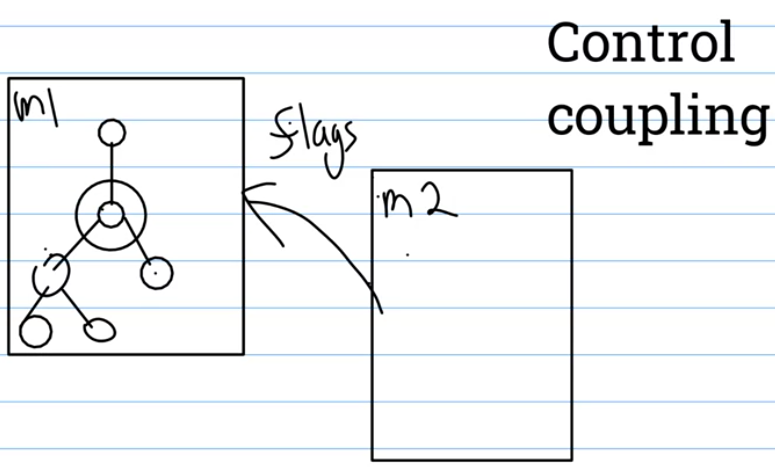 Control
coupling
m1
flags
m2